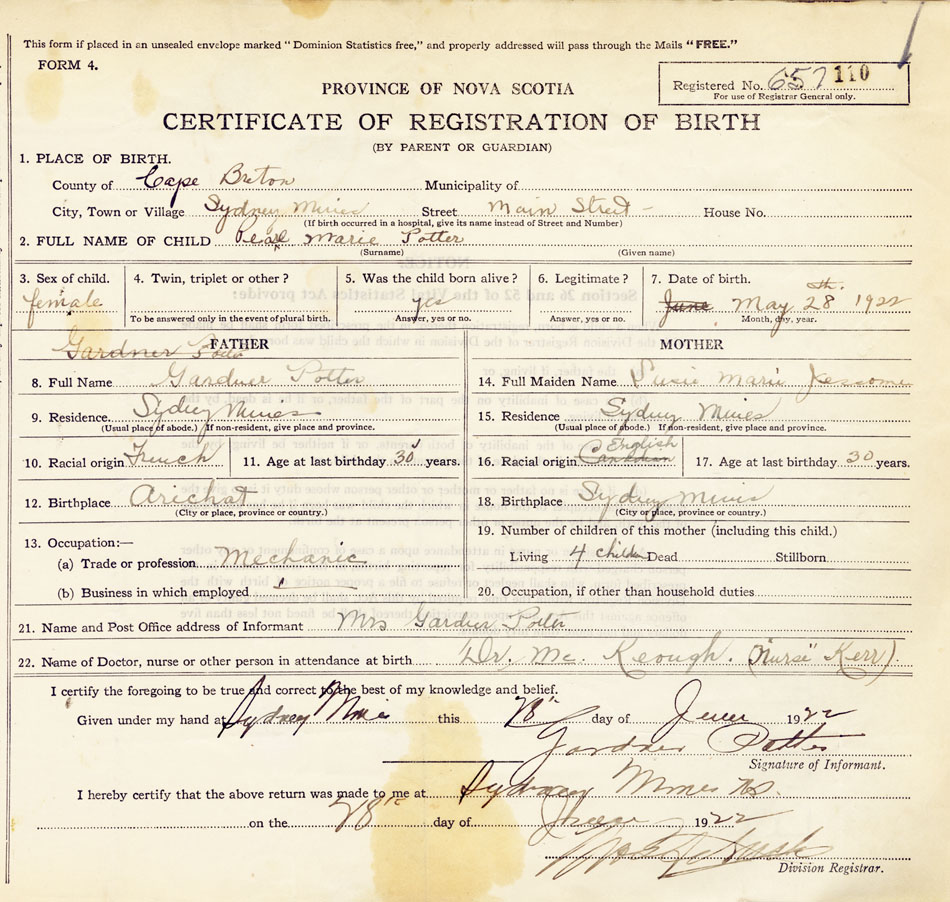 This form if placed in an unsealed envelope marked "Dominion Statistics free," and properly addressed will pass through the Mails "FREE."
FORM 4.
Registered No. 657 110
For use of Registrar General only.
PROVINCE OF NOVA SCOTIA
CERTIFICATE OF REGISTRATION OF BIRTH
(BY PARENT OR GUARDIAN)
1. PLACE OF BIRTH.
County of Cape Breton Municipality of
City, Town or Village Sydney Mines Street Main Street House No.
(If birth occurred in a hospital, give its name instead of Street and Number)
2. FULL NAME OF CHILD Pearl Marie Potter
(Surname) (Given name)
3. Sex of child. 4. Twin, triplet or other? 5. Was the child born alive? 6. Legitimate? 7. Date of birth.
female yes June May 28th. 1922
To be answered only in the event of plural birth. Answer, yes or no. Answer, yes or no. Month, day, year.
FATHER MOTHER
Gardner Potter
8. Full Name Gardner Potter 14. Full Maiden Name Susie Marie Jessome
9. Residence. Sydney Mines 15. Residence Sydney Mines
(Usual place of abode.) If non-resident, give place and province. (Usual place of abode.) If non-resident, give place and province.
10. Racial origin French 11. Age at last birthday 30 years. 16. Racial origin Canadian English 17. Age at last birthday 30 years.
12. Birthplace Arichat 18. Birthplace Sydney Mines
(City or place, province or country.) (City or place, province or country.)
13. Occupation:— 19. Number of children of this mother (including this child.)
(a) Trade or profession Mechanic Living 4 children Dead Stillborn
(b) Business in which employed 20. Occupation, if other than household duties
21. Name and Post Office address of Informant Mrs Gardner Potter
22. Name of Doctor, nurse or other person in attendance at birth Dr. Mc. Keough. (Nurse Kerr).
I certify the foregoing to be true and correct to the best of my knowledge and belief.
Given under my hand at Sydney Mines this 28th day of June 1922
Gardner Potter
Signature of Informant.
I hereby certify that the above return was made to me at Sydney Mines NS.
on the 28th day of June 1922
Division Registrar.